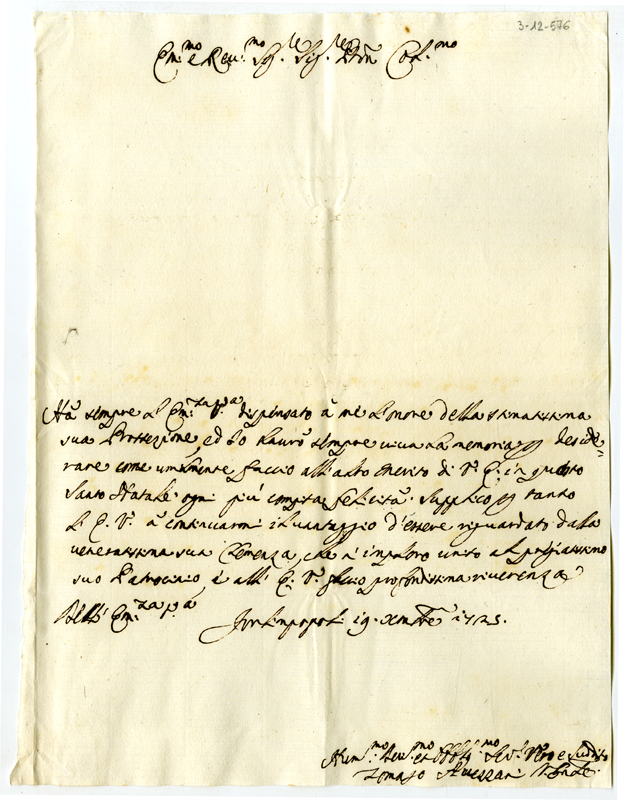 3-12-576
Em.mo e Reu.mo Sig.re Sig.re Pron Col.mo
Hà sempre l' Em.za V.a dispensato à me l'onore della stimatissima
sua Protezzione, ed Io hauro sempre uiua la memoria deside=
rare come umilmente faccio all' alto Merito di V. E. in questo
Santo Natale ogni più compita felicità. Supplico tanto
L' E. V. à continuarmi il uantaggio d'essere riguardato dalla
ueneratissima sua Clemenza, che imploro unito al pregiatissimo
suo Patrocinio, e all' E. V. faccio profondissima riuerenza
Dell' Em.za V.a
Forlimpopoli 19. Xmbre 1725.
Hum.mo Deu.mo et Obblig.mo Se.re Vero e Suddito
Tomaso